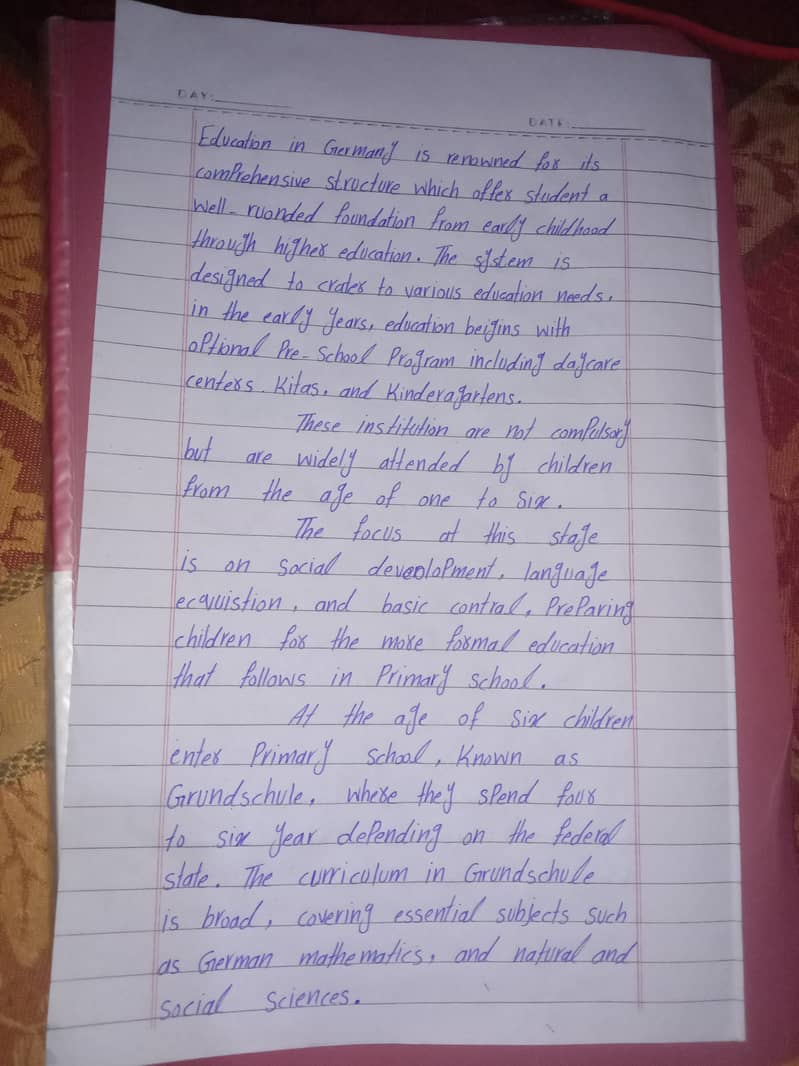 DAY:
DATE:
Education in Germany is renowned for its
comprehensive structure which offer student a
well-ruonded foundation from early childhood
through higher education. The system is
designed to crater to various education needs.
in the early years, education beigins with
optional Pre-School Program including daycare
centers. Kitas. and Kinderagartens.
These institution are not compulsory
but are widely attended by children
from the age of one to six.
The focus at this stage
is on social devenlopment, language
ecquistion, and basic contral, Preparing
children for the more formal education
that follows in Primary school.
At the age of six children
enter Primary school, Known as
Grundschule, where they spend four
to six year depending on the federal
state. The curriculum in Grundschule
is broad, covering essential subjects such
as German mathematics, and natural and
social sciences.